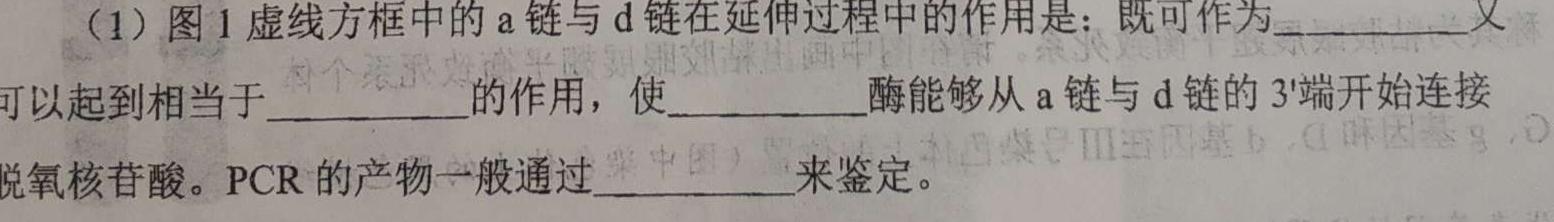 （1）图 1 虚线方框中的 a 链与 d 链在延伸过程中的作用是：既可作为__________又
可以起到相当于__________的作用，使__________酶能够从 a 链与 d 链的 3'端开始连接
脱氧核苷酸。PCR 的产物一般通过__________来鉴定。